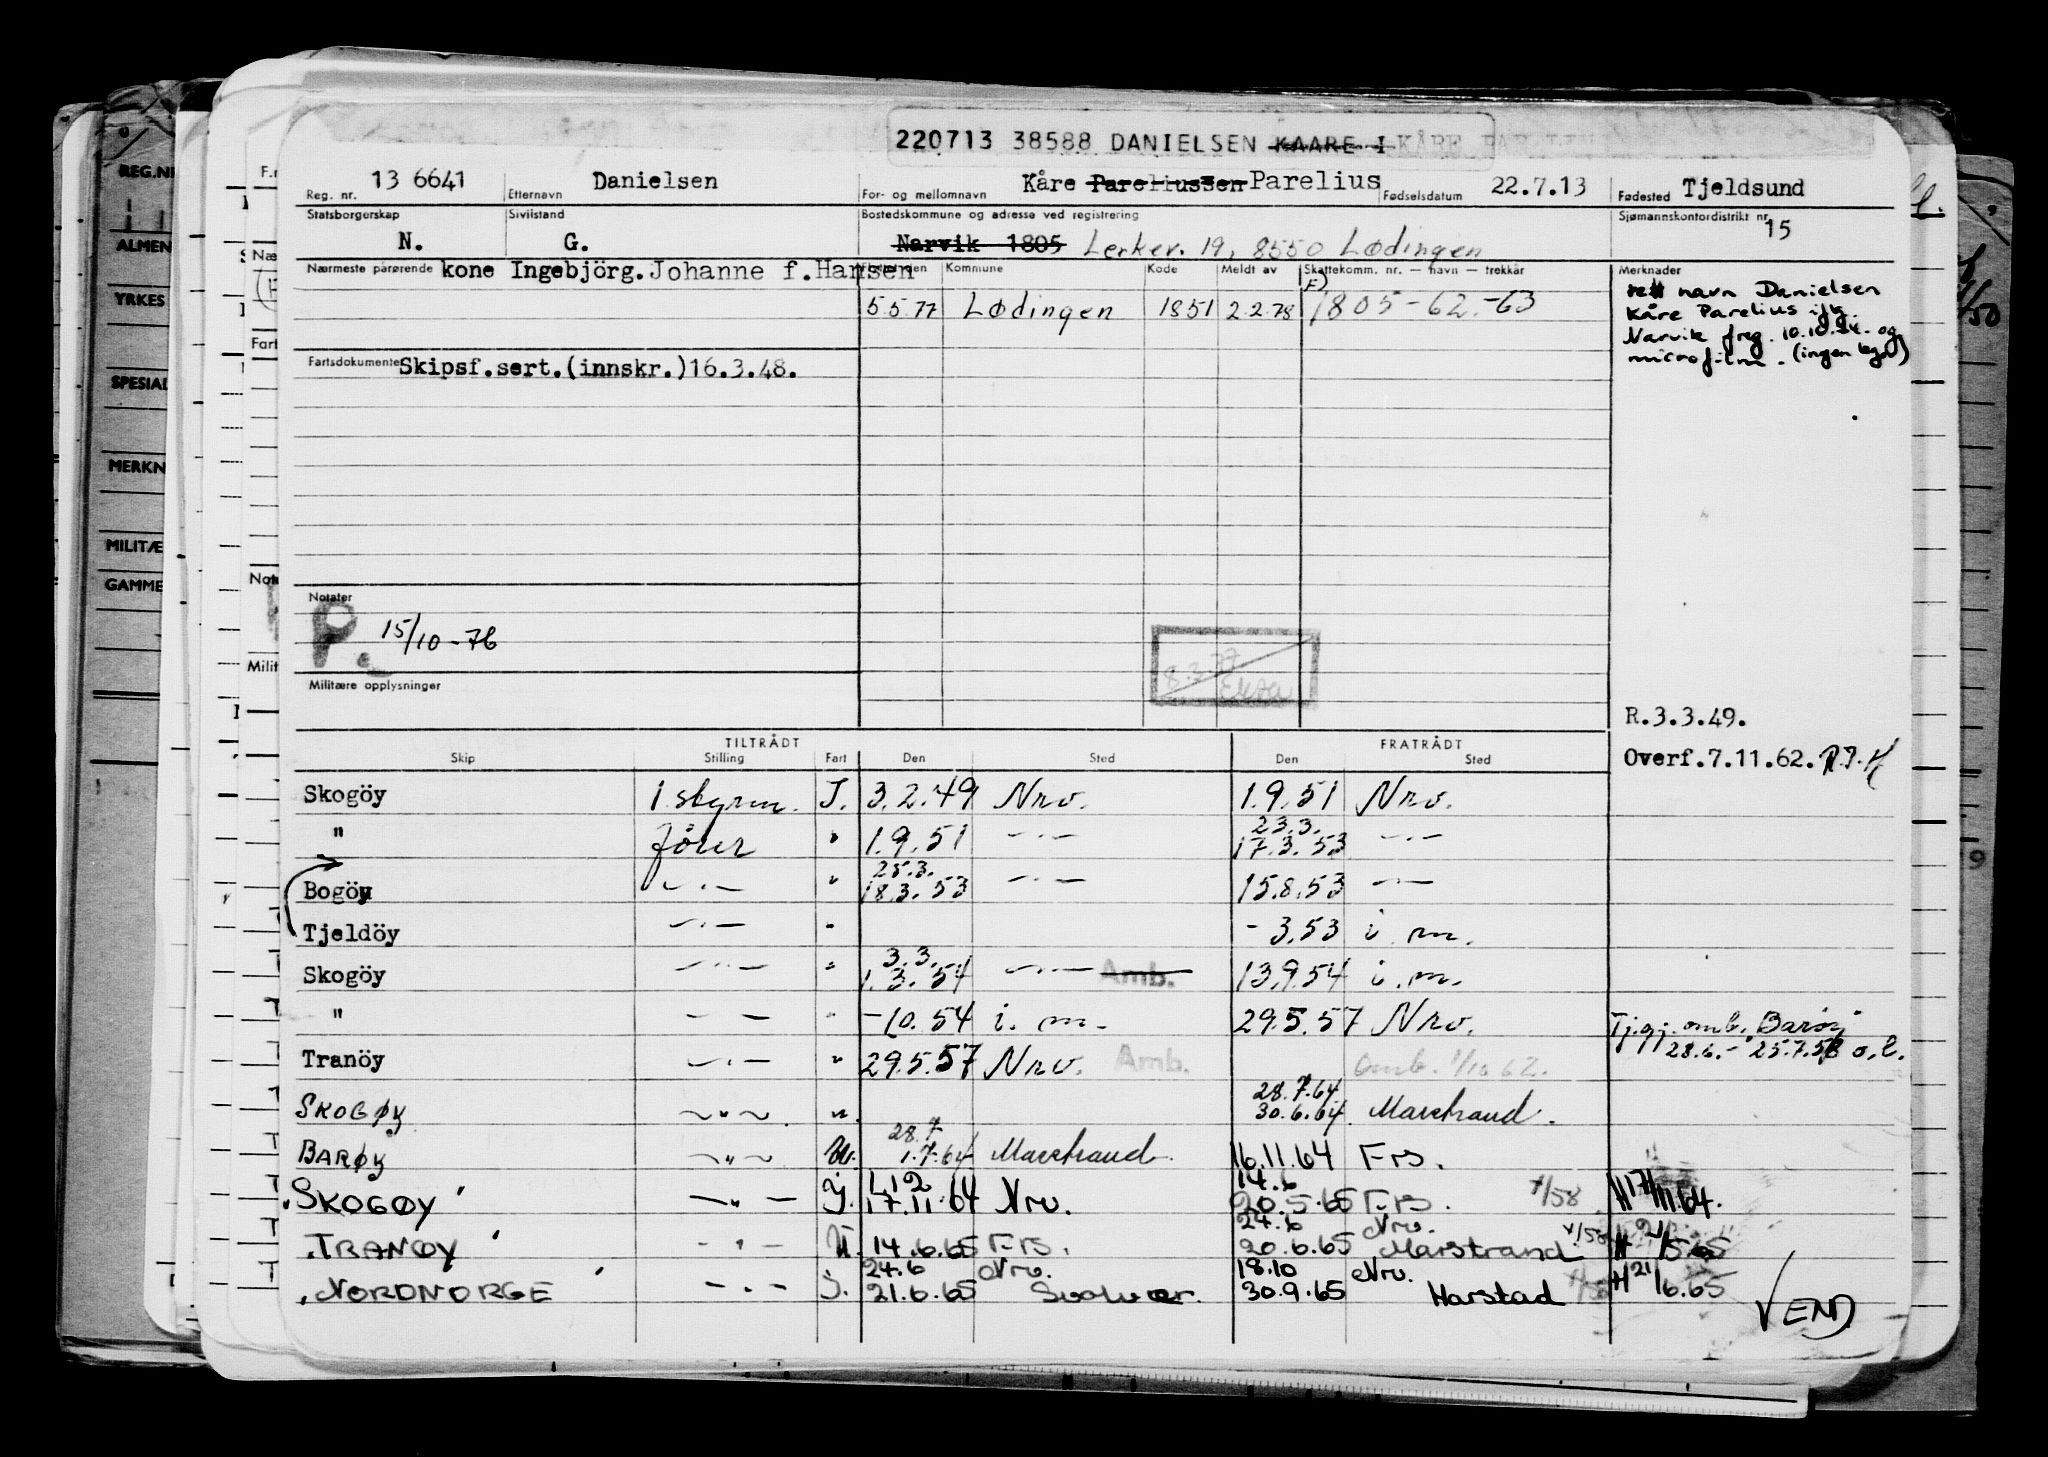 220713 38588 DANIELSEN KAARE I KÅRE PARELIUS
Reg. nr. 13 6641 Etternavn Danielsen For- og mellomnavn Kåre Pareliussen Parelius Fødselsdatum 22.7.13 Fødested Tjeldsund
Statsborgerskap N. Sivilstand G. Bostedskommune og adresse ved registrering Narvik 1805 Lerkev. 19, 8550 Lødingen Sjømannskontordistrikt nr. 15
Nærmeste pårørende kone Ingebjörg. Johanne f. Hansen
Flyttet den Kommune Kode Meldt av Skattekomm. nr. — navn — trekkår Merknader
5.5.77 Lødingen 1851 2.2.78 F) 1805-62-63
rett navn Danielsen
Kåre Parelius iflg.
Narvik freg. 10.10.54. og
microfilm. (ingen bgn)
Fartsdokumenter Skipsf.sert.(innskr.)16.3.48.
Notater
P. 15/10-76
8.3.77
Militære opplysninger
R.3.3.49.
Overf.7.11.62.
TILTRÅDT FRATRÅDT
Skip Stilling Fart Den Sted Den Sted
Skogöy 1. styrm. I. 3.2.49 Nrv. 1.9.51 Nrv.
" fører " 1.9.51 —"— 23.3. 17.3.53 —"—
Bogöy —"— " 25.3. 18.3.53 —"— 15.8.53 —"—
Tjeldöy —"— " - 3.53 i. m.
Skogöy —"— " 3.3. 1.3.54 —"— Amb. 13.9.54 i. m.
" —"— " -10.54 i. m. 29.5.57 Nrv. Tj.gj. omb. Barøy
28.6.- 25.7.58 o.l.
Tranöy —"— " 29.5.57 Nrv. Amb. Omb. 1/10 62.
SKOGØY —"— " 28.7.64 30.6.64 Marstrand.
BARØY —"— U. 28.7 1.7.64 Marstrand 16.11.64 Frs.
"SKOGØY" —"— I. 1.12 17.11.64 Nrv. 14.6 20.5.65 Frs. 1/58 H 17/11.64.
"TRANØY" —"— U. 14.6.65 Frs. 24.6 20.6.65 Nrv. Marstrand 1/58 H 21/5.65
"NORDNORGE" —"— I. 24.6 21.6.65 Nrv. Svolvær. 18.10 30.9.65 Nrv. Harstad H 21/6.65
VEND
REG.NR
ALMEN
YRKES
SPESIAL
MERKN
MILITÆ
GAMME
F.n
Næ
Fart
Not
Milit